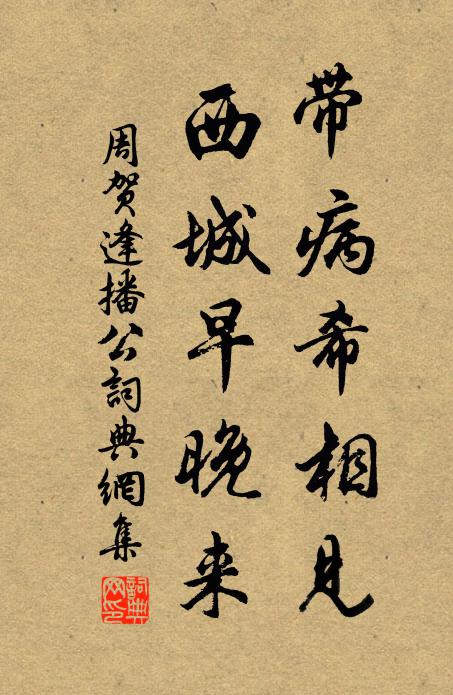 带病希相见
西城早晚来
周贺逢播公词典網集
詞典网印